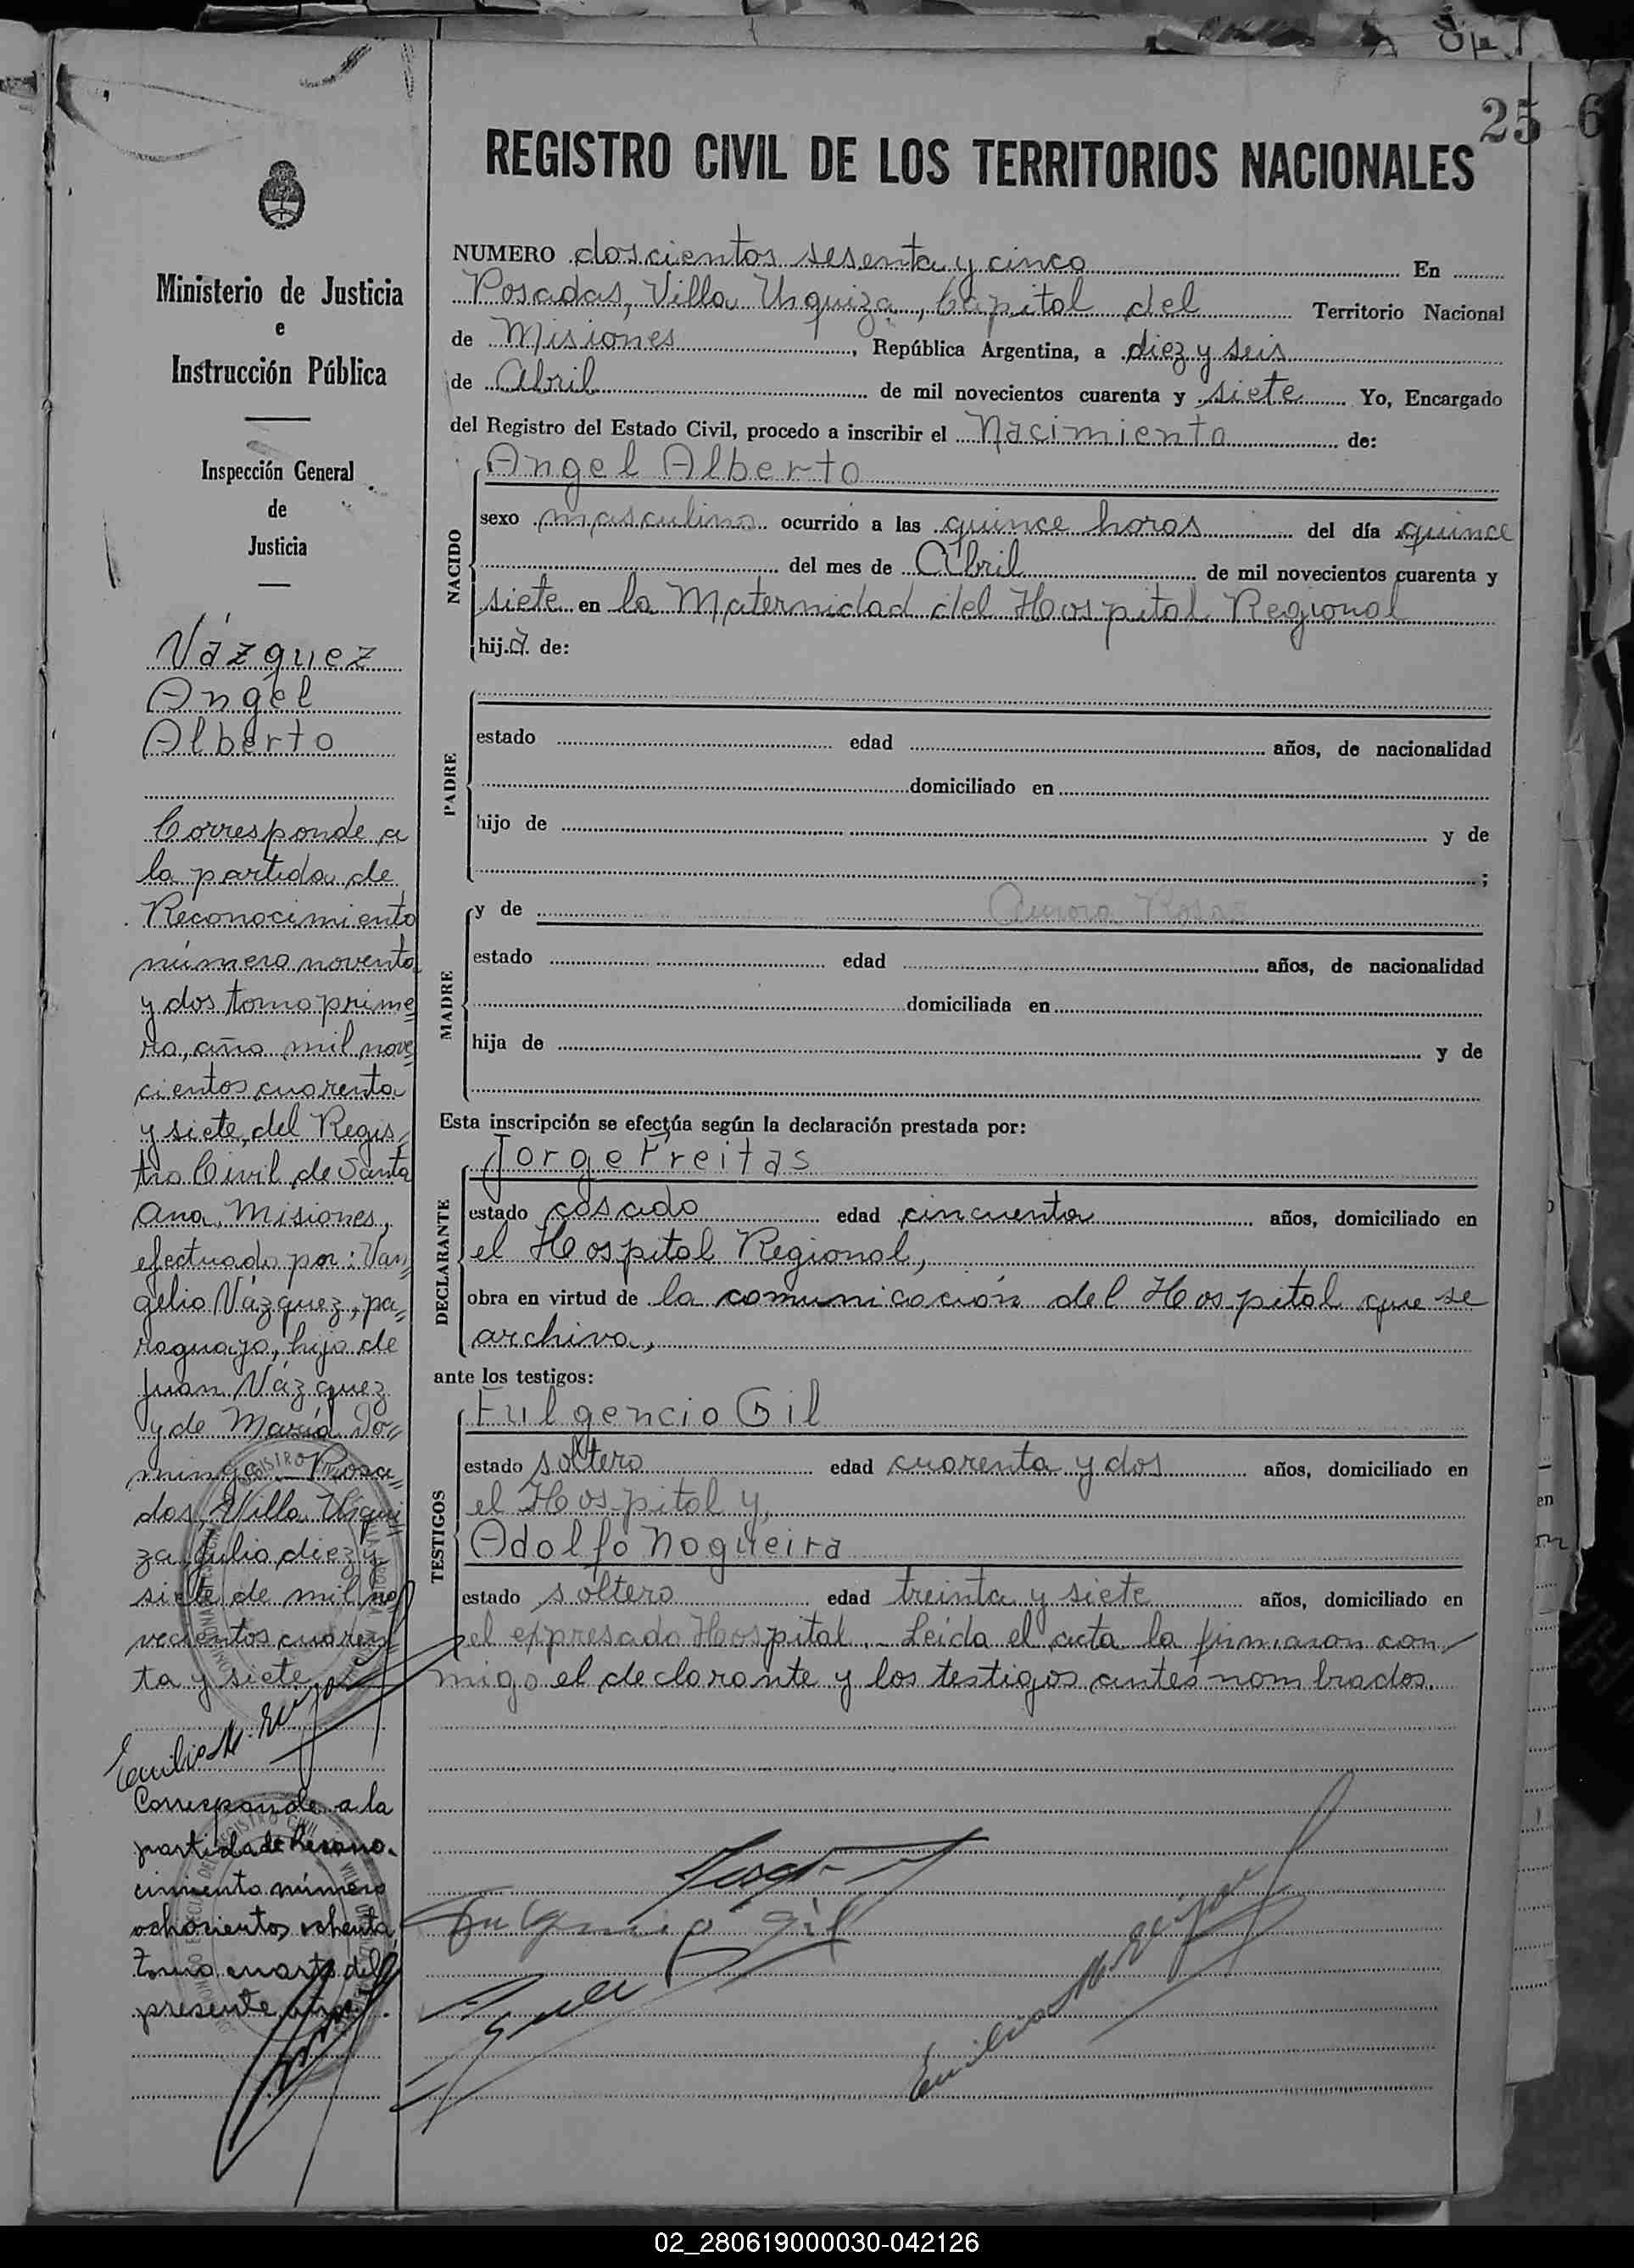 25 6
REGISTRO CIVIL DE LOS TERRITORIOS NACIONALES
Ministerio de Justicia
e
Instrucción Pública
Inspección General
de
Justicia
Vázquez
Angel
Alberto
Corresponde a
la partida de
Reconocimiento
número noventa
y dos tomo prime
ro, año mil nove
cientos cuarenta
y siete, del Regis
tro Civil de Santa
Ana, Misiones,
efectuado por: Van
gelio Vázquez, pa
raguayo, hijo de
Juan Vázquez
y de María Do
minga Posa
das, Villa Urqui
za Julio diez y
siete de mil no
vecientos cuaren
ta y siete
Corresponde a la
partida de Recono-
cimiento número
ochocientos ochenta
Tomo cuarto del
presente año.
NUMERO doscientos sesenta y cinco En
Posadas, Villa Urquiza, Capital del Territorio Nacional
de Misiones, República Argentina, a diez y seis
de Abril de mil novecientos cuarenta y siete Yo, Encargado
del Registro del Estado Civil, procedo a inscribir el Nacimiento de:
Angel Alberto
NACIDO
sexo masculino ocurrido a las quince horas del día quince
del mes de Abril de mil novecientos cuarenta y
siete en la Maternidad del Hospital Regional
hij.o. de:
PADRE
estado edad años, de nacionalidad
domiciliado en
hijo de y de
;
MADRE
y de Aurora Rosa
estado edad años, de nacionalidad
domiciliada en
hija de y de
Esta inscripción se efectúa según la declaración prestada por:
DECLARANTE
Jorge Freitas
estado casado edad cincuenta años, domiciliado en
el Hospital Regional,
obra en virtud de la comunicación del Hospital que se
archiva,
ante los testigos:
TESTIGOS
Fulgencio Gil
estado soltero edad cuarenta y dos años, domiciliado en
el Hospital y,
Adolfo Nogueira
estado soltero edad treinta y siete años, domiciliado en
el expresado Hospital. - Leída el acta la firmaron con
migo el declarante y los testigos antes nombrados.
Fulgencio Gil
02_280619000030-042126